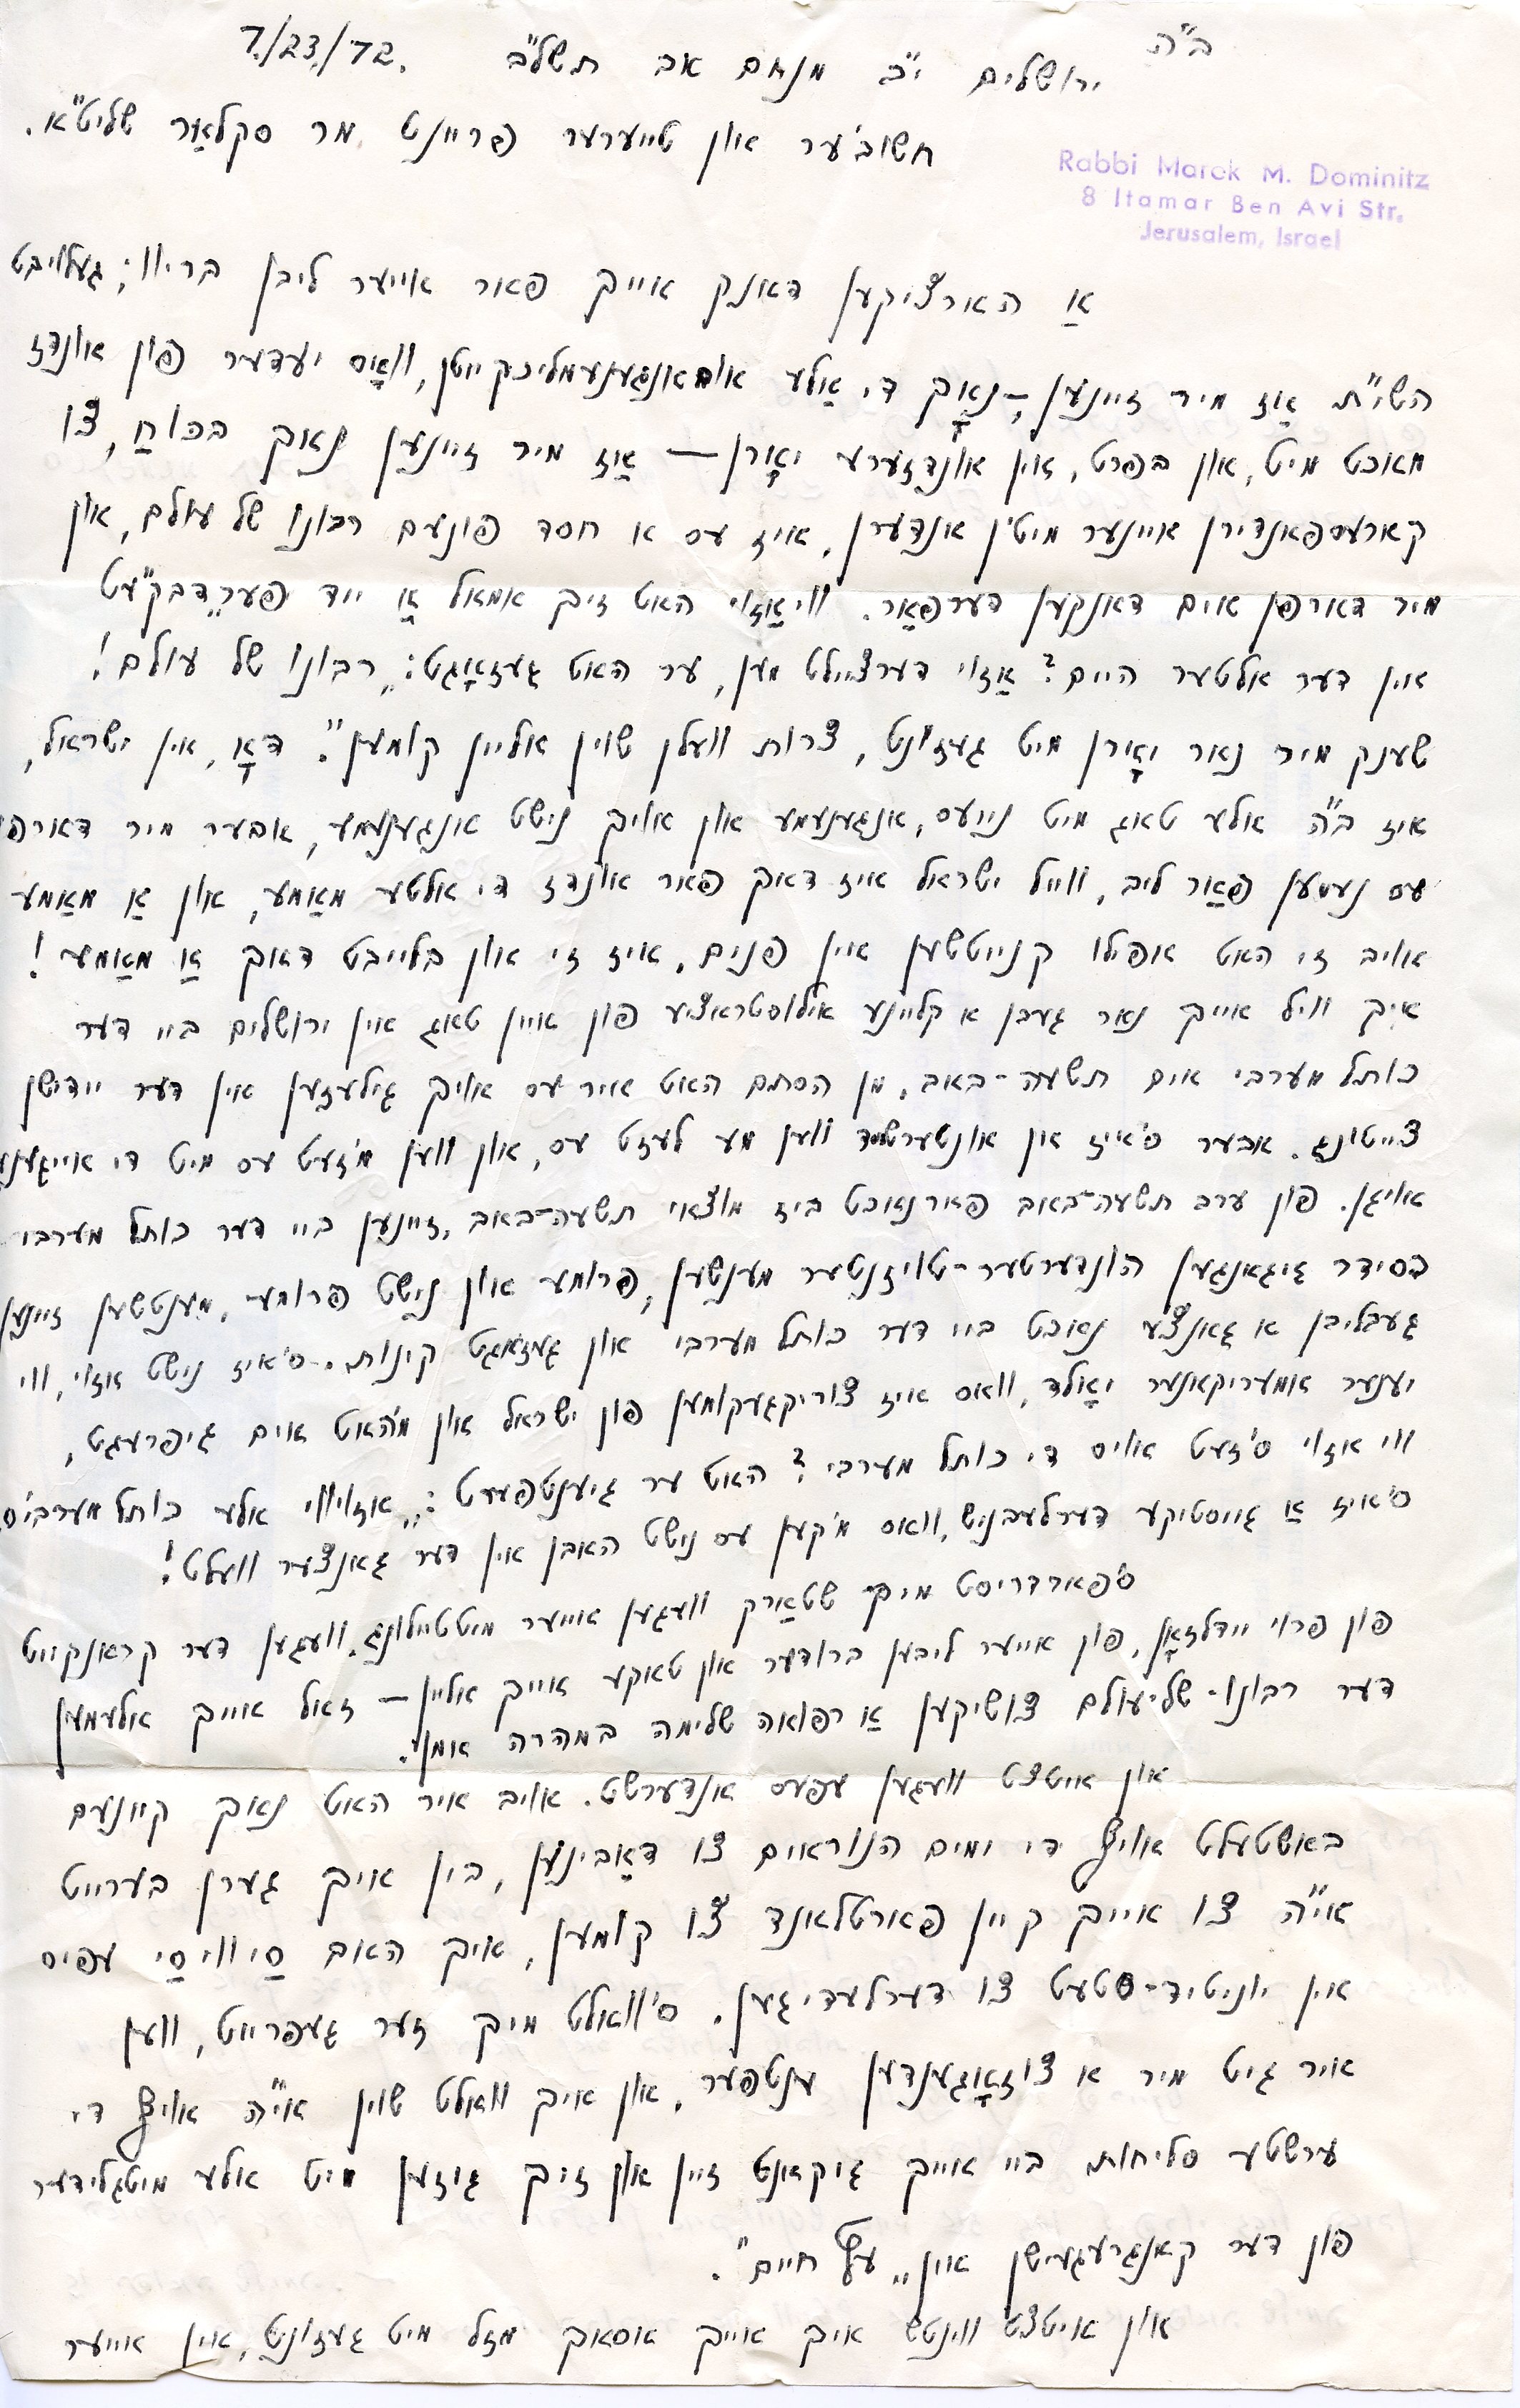 ב"ה
ירושלים י"ב מנחם אב תשל"ב 7./23./72.
חשוב'ער און טייערער פריינט מר סקלאַר שליט"א.
Rabbi Marek M. Dominitz
8 Itamar Ben Avi Str.
Jerusalem, Israel
אַ הארציקען דאנק אייך פאר אייער ליבן בריוו; געלויבט
השי"ת אַז מיר זיינען, – נאָך די אַלע אומאנגענעמליכקייטן, וואָס יעדער פון אונדז
מאכט מיט, און בפרט, אין אונדזערע יאָרן — אַז מיר זיינען נאך בכוחַ, צו
קארעספאנדירן איינער מיט'ן אנדערן, איז עס א חסד פונעם רבונו של עולם, און
מיר דארפן אים דאנקען דערפאַר. וויאַזוי האט זיך אמאל אַ ייד פער„דבק"עט
אין דער אלטער היים? אַזוי דערציילט מען, ער האט געזאָגט: „רבונו של עולם!
שענק מיר נאר יאָרן מיט געזונט, צרות וועלן שוין אליין קומען". דאָ, אין ישראל,
איז ב"ה אלע טאג מיט נייעס, אנגענעמע און אויך נישט אנגענעמע, אבער מיר דארפן
עס נעמען פאַר ליב, ווייל ישראל איז דאך פאר אונדז די אלטע מאַמע, און אַ מאַמע
אויב זי האט אפילו קנייטשען אין פנים, איז זי און בלייבט דאך אַ מאַמע!
איך וויל אייך נאַר געבן א קליינע אילוסטראציע פון איין טאג אין ירושלים ביי דער
כותל מערבי אים תשעה-באב. מן הסתם האט איר עס אויך גילעזען אין דער יידישן
צייטונג. אבער ס'איז אן אונטערשיד ווען מע לעזט עס, און ווען מ'זעט עס מיט די אייגענע
אויגן. פון ערב תשעה-באב פארנאכט ביז מוצאי תשעה-באב, זיינען ביי דער כותל מערבי
בסידר גיגאנגען הונדערטער-טויזנטער מענשען, פרומע און נישט פרומע, מענטשען זיינען
געבליבן א גאנצע נאכט ביי דער כותל מערבי און געזאגט קינות. ס'איז נישט אזוי, ווי
יענער אמעריקאנער יאָלד, וואס איז צוריקגעקומען פון ישראל און מ'האט אים גיפרעגט,
ווי אזוי ס'זעט אויס די כותל מערבי? האט ער גיענטפערט: „אזויווי אלע כותל מערבי'ס
ס'איז אַ גייסטיקע דערלעבניש, וואס מ'קען עס נישט האבן אין דער גאנצער וועלט!
ס'פארדריסט מיך שטאַרק וועגען אייער מיטטיילונג, וועגען דער קראנקייט
פון פרוי יידלזאָן, פון אייער ליבען ברודער און טאקע אייך אליין — זאל אייך אלעמען
דער רבונו-של-עולם צושיקען אַ רפואה שלימה במהרה אמן.
און איטצט וועגען עפעס אנדערשט. אויב איר האט נאך קיינעם
באשטעלט אויף די ימים הנוראים צו דאַבינען, בין איך גערן בערייט
אי"ה צו אייך קיין פארטלאנד צו קומען, איך האב סַיי ווי סַיי עפיס
אין יוניטיד-סטעט צו דערלעדיגען. ס'וואלט מיך זער געפרייט, ווען
איר גיט מיר א צוזאָגענדען ענטפער, און איך וואלט שוין אי"ה אויף די
ערשטע סליחות ביי אייך גיקאנט זיין און זיך גיזען מיט אלע מיטגלידער
פון דער קאנגרעגעישן אין „עץ חיים".
און איטצט ווינטש איך אייך אסאך מזל מיט געזונט, אין אייער